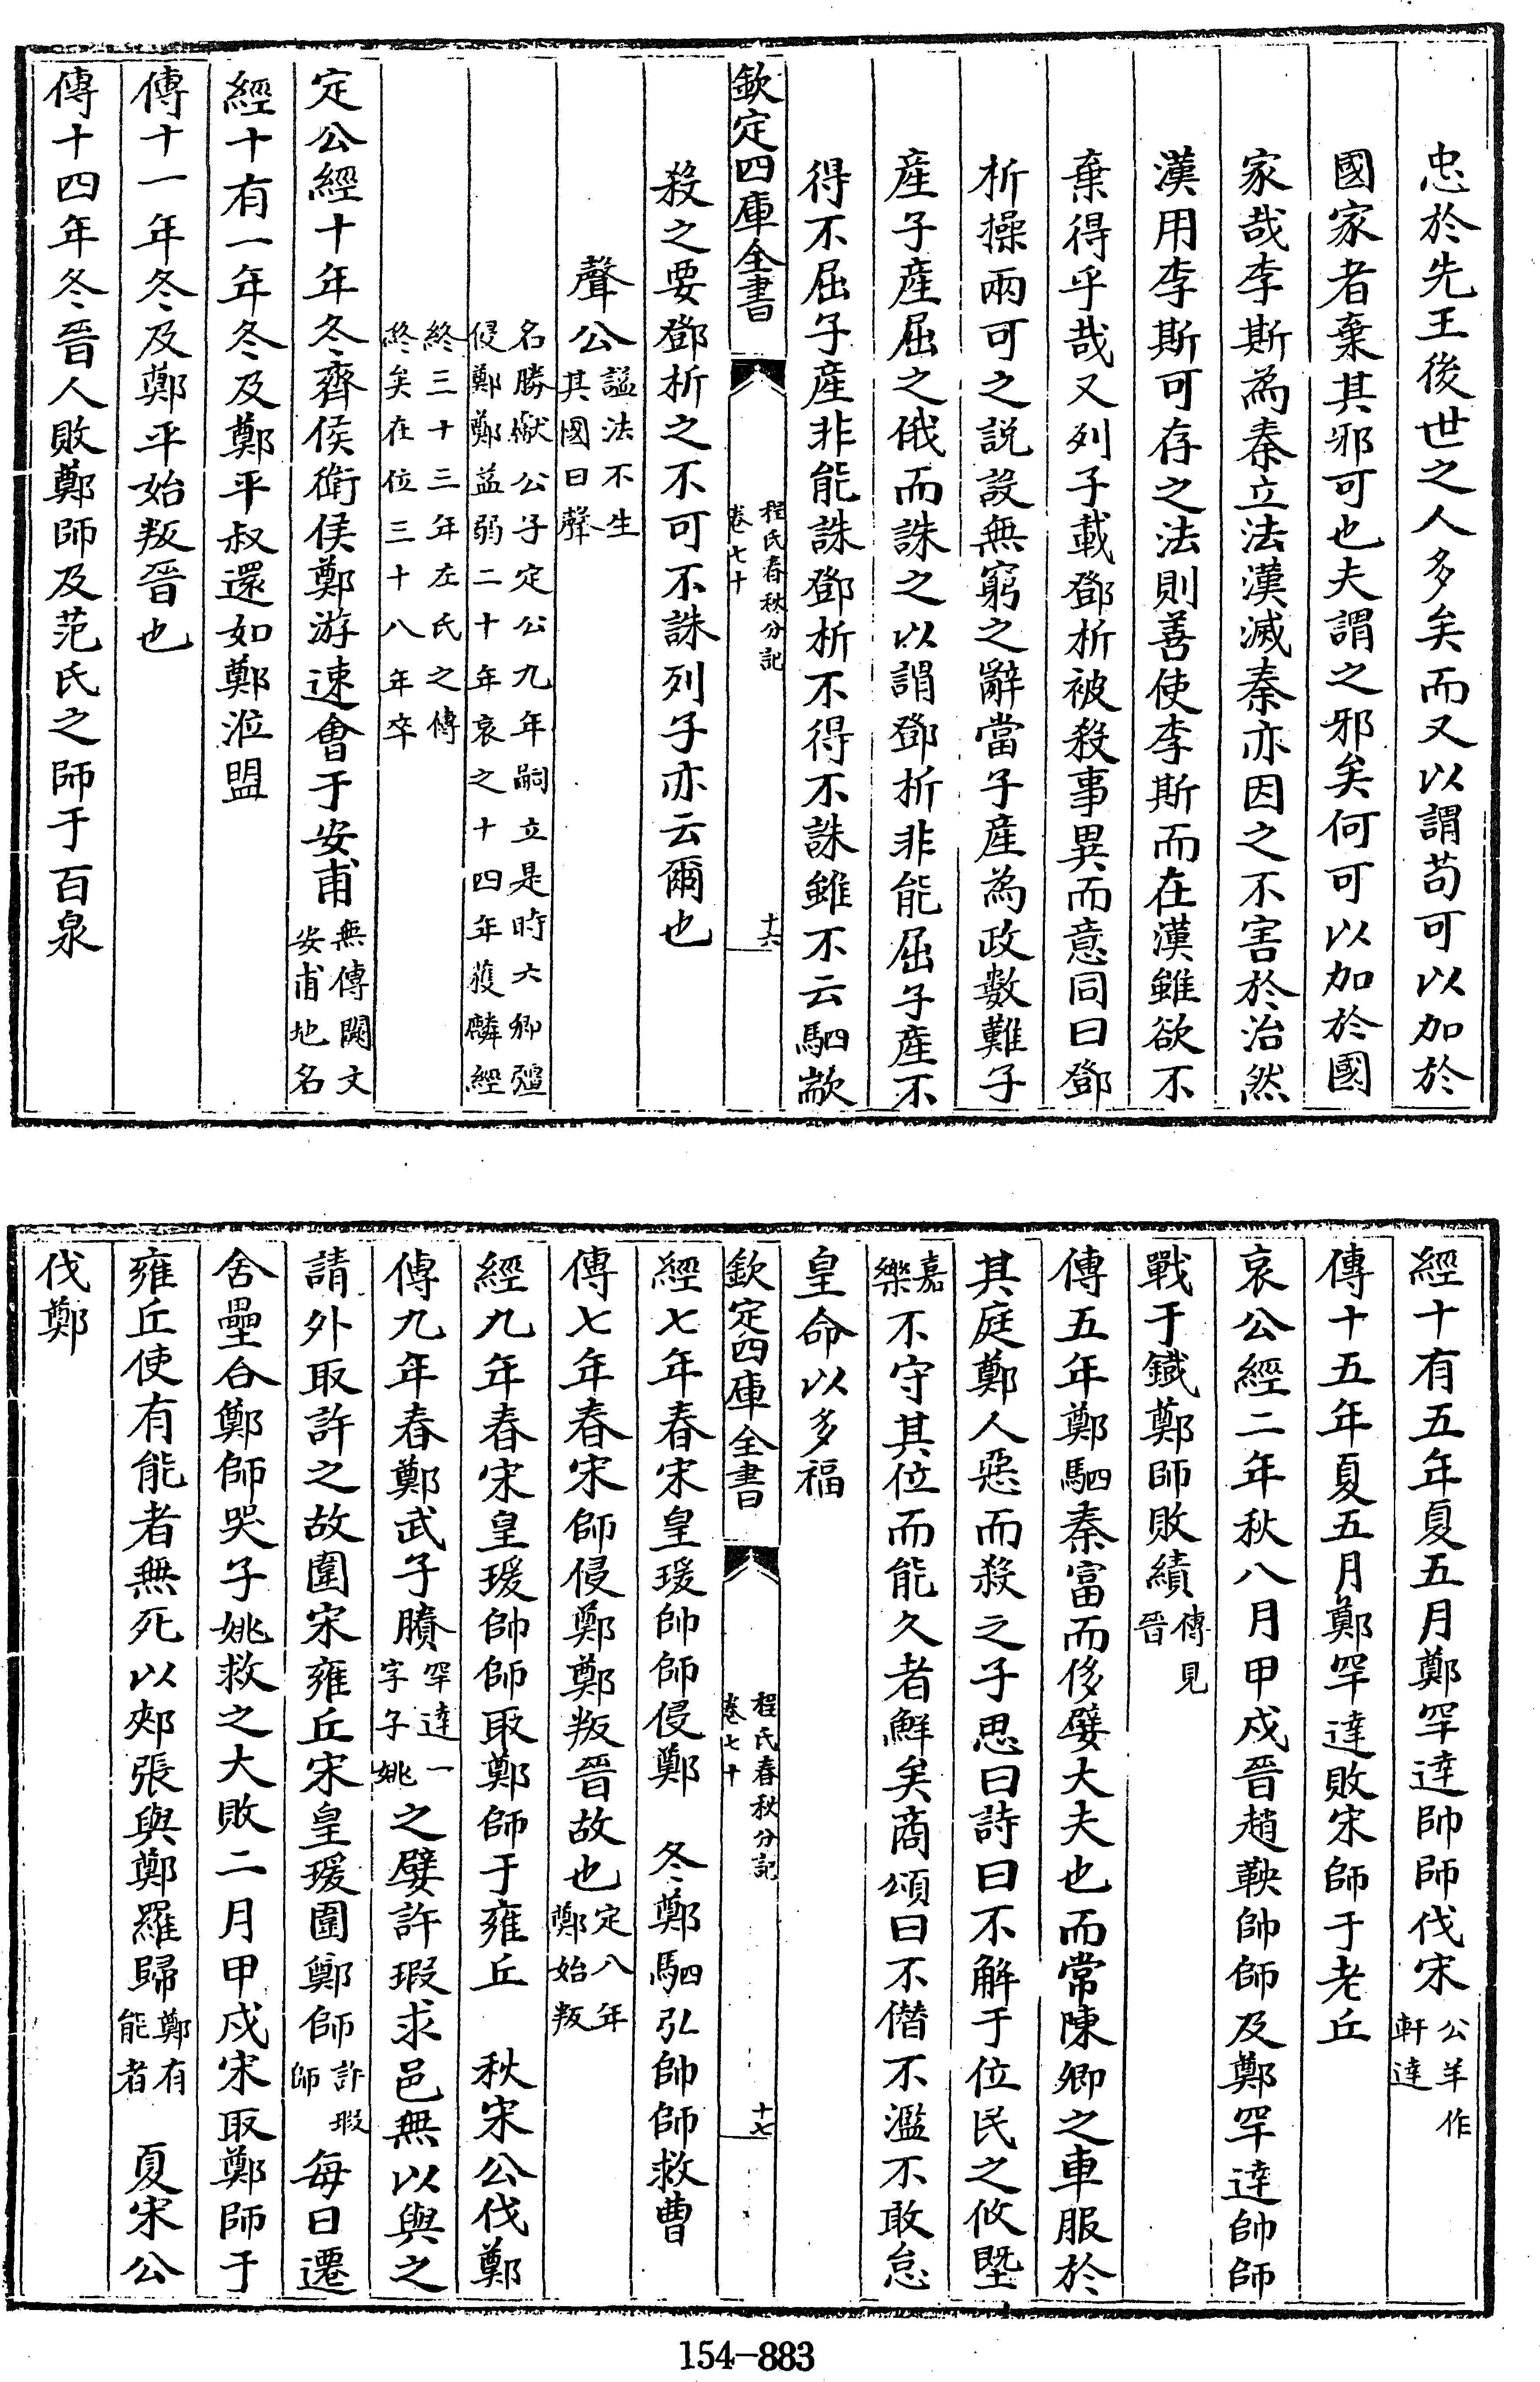 忠於先王後世之人多矣而又以謂苟可以加於
國家者棄其邪可也夫謂之邪矣何可以加於國
家哉李斯為秦立法漢滅秦亦因之不害於治然
漢用李斯可存之法則善使李斯而在漢雖欲不
棄得乎哉又列子載鄧析被殺事異而意同曰鄧
析操兩可之說設無窮之辭當子產為政數難子
產子產屈之俄而誅之以謂鄧析非能屈子產不
得不屈子產非能誅鄧析不得不誅雖不云駟歂
欽定四庫全書
程氏春秋分記
卷七十
十六
殺之要鄧析之不可不誅列子亦云爾也
聲公諡法不生其國曰聲
名勝獻公子定公九年嗣立是時六卿彊
侵鄭鄭益弱二十年哀之十四年獲麟經
終三十三年左氏之傳
終矣在位三十八年卒
定公經十年冬齊侯衛侯鄭游速會于安甫無傳闕文安甫地名
經十有一年冬及鄭平叔還如鄭涖盟
傳十一年冬及鄭平始叛晉也
傳十四年冬晉人敗鄭師及范氏之師于百泉
經十有五年夏五月鄭罕達帥師伐宋公羊作軒達
傳十五年夏五月鄭罕達敗宋師于老丘
哀公經二年秋八月甲戌晉趙鞅帥師及鄭罕達帥師
戰于鐵鄭師敗績傳見晉
傳五年鄭駟秦富而侈嬖大夫也而常陳卿之車服於
其庭鄭人惡而殺之子思曰詩曰不解于位民之攸塈
嘉樂不守其位而能久者鮮矣商頌曰不僭不濫不敢怠
皇命以多福
欽定四庫全書
程氏春秋分記
卷七十
十七
經七年春宋皇瑗帥師侵鄭　冬鄭駟弘帥師救曹
傳七年春宋師侵鄭鄭叛晉故也定八年鄭始叛
經九年春宋皇瑗帥師取鄭師于雍丘　秋宋公伐鄭
傳九年春鄭武子賸罕達一字子姚之嬖許瑕求邑無以與之
請外取許之故圍宋雍丘宋皇瑗圍鄭師許瑕師每日遷
舍壘合鄭師哭子姚救之大敗二月甲戌宋取鄭師于
雍丘使有能者無死以郟張與鄭羅歸鄭有能者　夏宋公
伐鄭
154-883